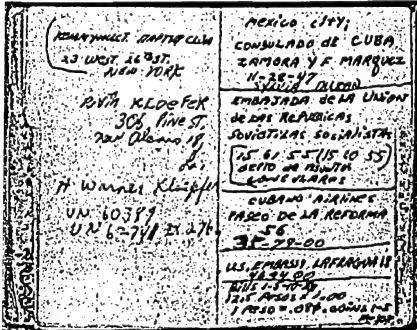 23 WEST 26th ST.
NEW YORK
RUTH KLOEPFER
306 PINE ST
New Orleans 18,
La.
H Warner Kloepfer
UN 60389
UN 6-741 X 276
MEXICO CITY;
CONSULADO DE CUBA
ZAMORA Y F. MARQUEZ
11-28-47
SYLVIA DURAN
EMBAJADA de LA UNION
de LAS REPUBICAS
SOVIETICAS SOCIALISTAS
15 61 55 (15 60 55)
DEPTO de
CONSULARES
CUBANO AIRLINES
PASEO DE LA REFORMA
56
35-79-00
U.S. EMBASSY, LAFRAGUA 18
12.5 PESOS =
1 PESO = .08¢